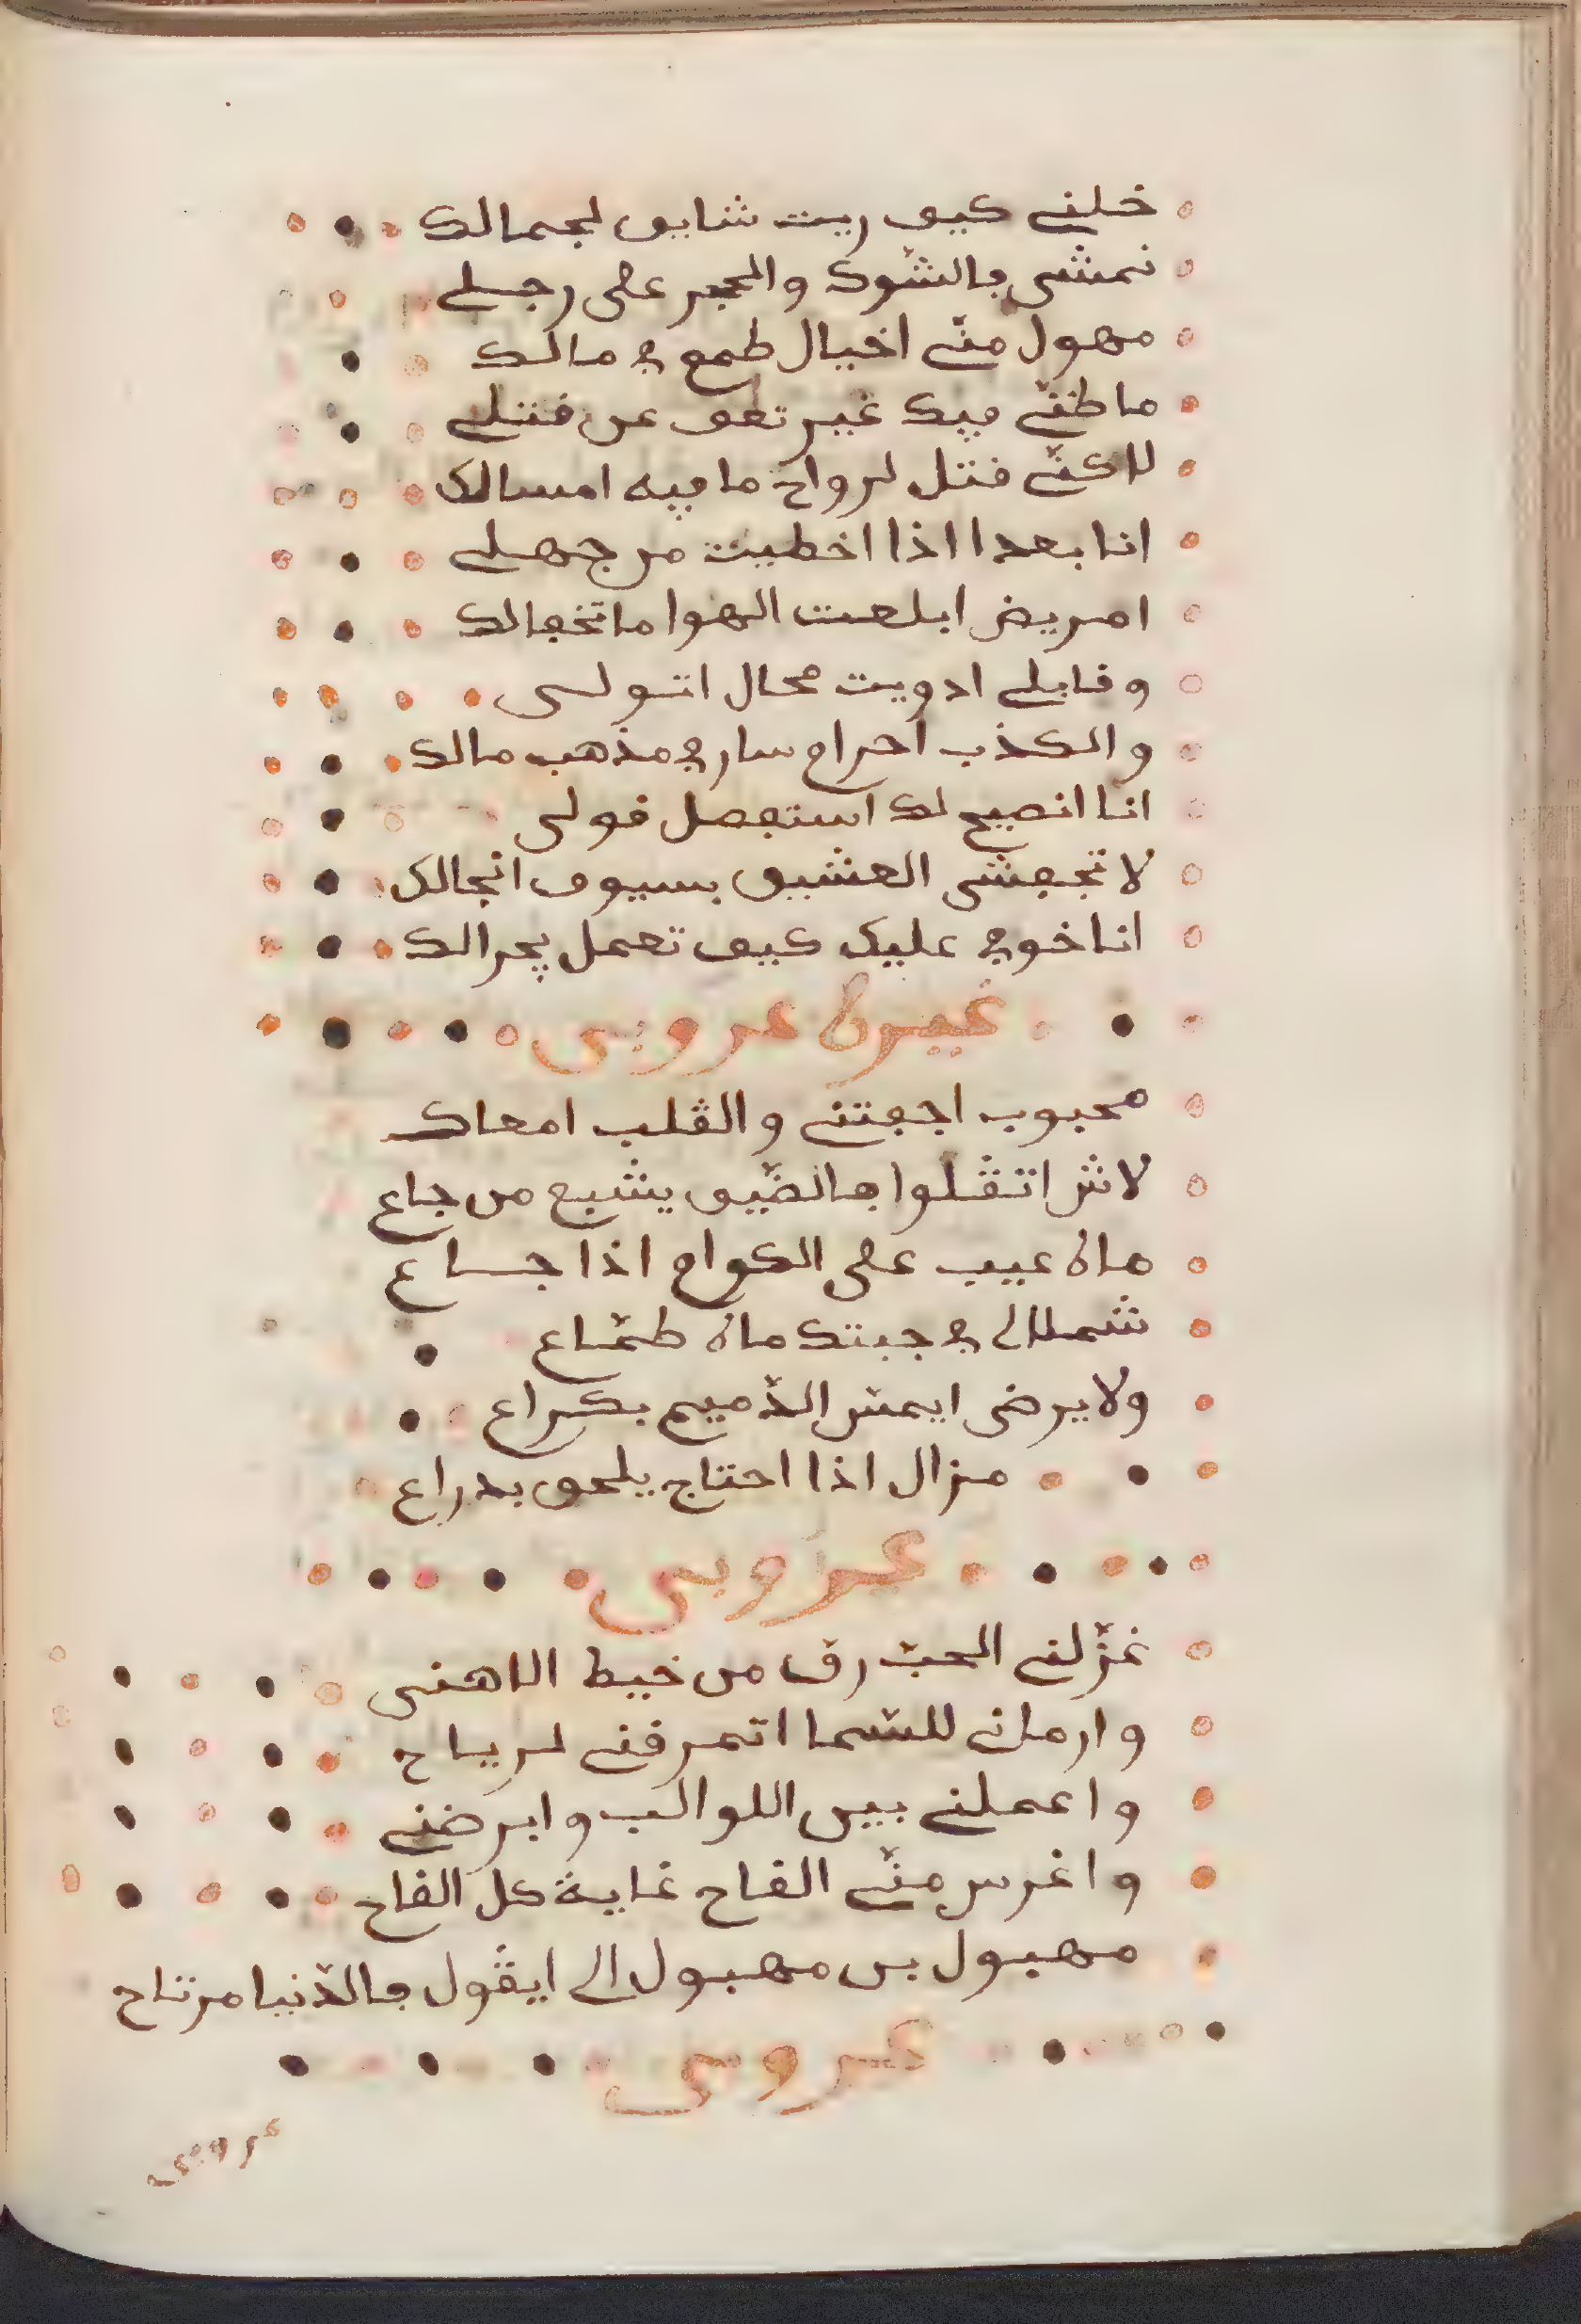 خلني كيف ريت شايق لجمالك
نمشي بالشوك والجمر على رجلي
مهول مني اخيال طمع في مالك
ما ظني فيك غير تعف عن قتلي
لاكني قتل لرواح ما فيه امسالك
انا بعدا اذا اخطيت من جهلي
امريض ابلعت الهوا ما تخفالك
وقابلي ادويت محال اتولى
والكذب احرام سار في مذهب مالك
انا انصيح لك استفصل قولي
لا تجفشي العشيق بسيوف انجالك
انا خوفي عليك كيف تعمل يجرالك
غيره عروبي
محبوب اجفتني والڨلب امعاك
لاش اتڨلوا هالضيف يشبع من جاع
ماه عيب على الكوام اذا جاع
شملال في جبتك ماه طماع
ولا يرضى ايمس الذميم بكراع
مزال اذا احتاج يلحق بدراع
عروبي
غزلني الحب رق من خيط الاهني
وارمان للسما اتمرقني لرياح
واعملني بين اللوالب وابرضني
واغرس مني القاح غاية كل القاح
مهبول بن مهبول الي ايڨول فالدنيا مرتاح
عروبي
عروبي